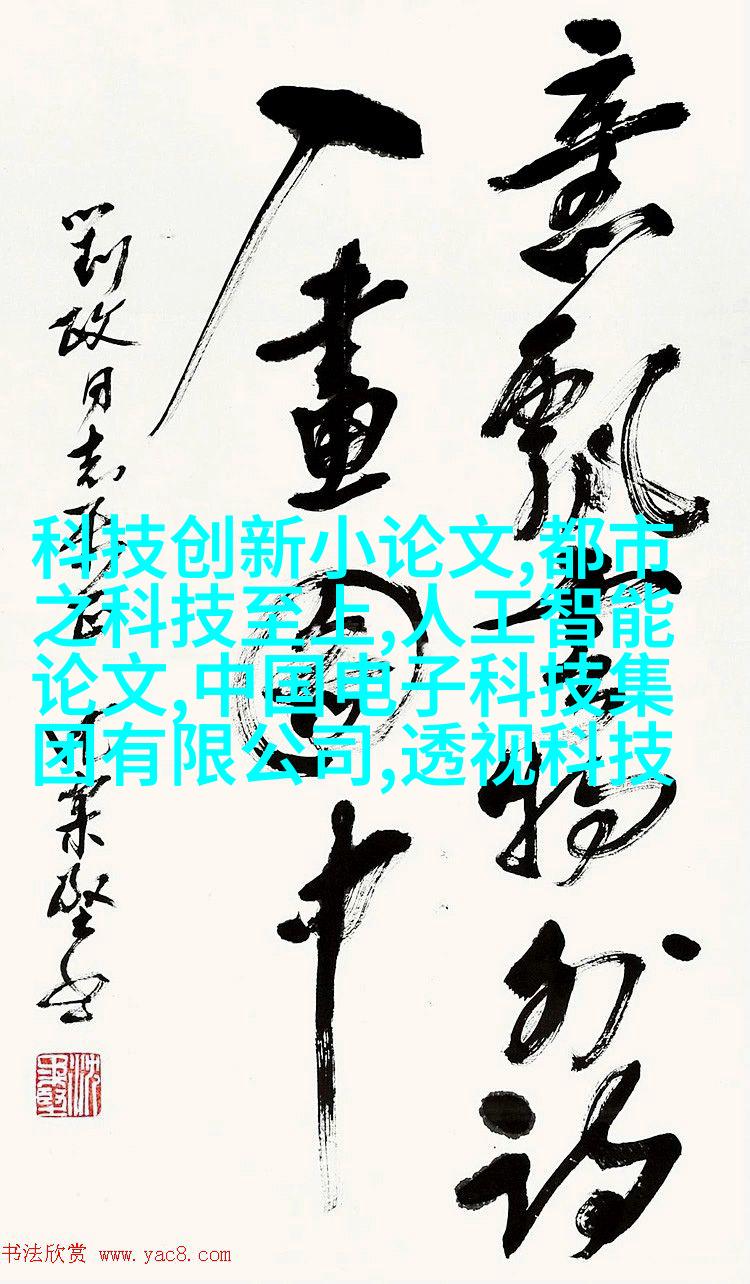 意飄雲物外詩
入畫圖中
劉政同志雅正
科技创新小论文,都市
之科技至上,人工智能
论文,中国电子科技集
团有限公司,透视科技
书法欣赏 www.yac8.com